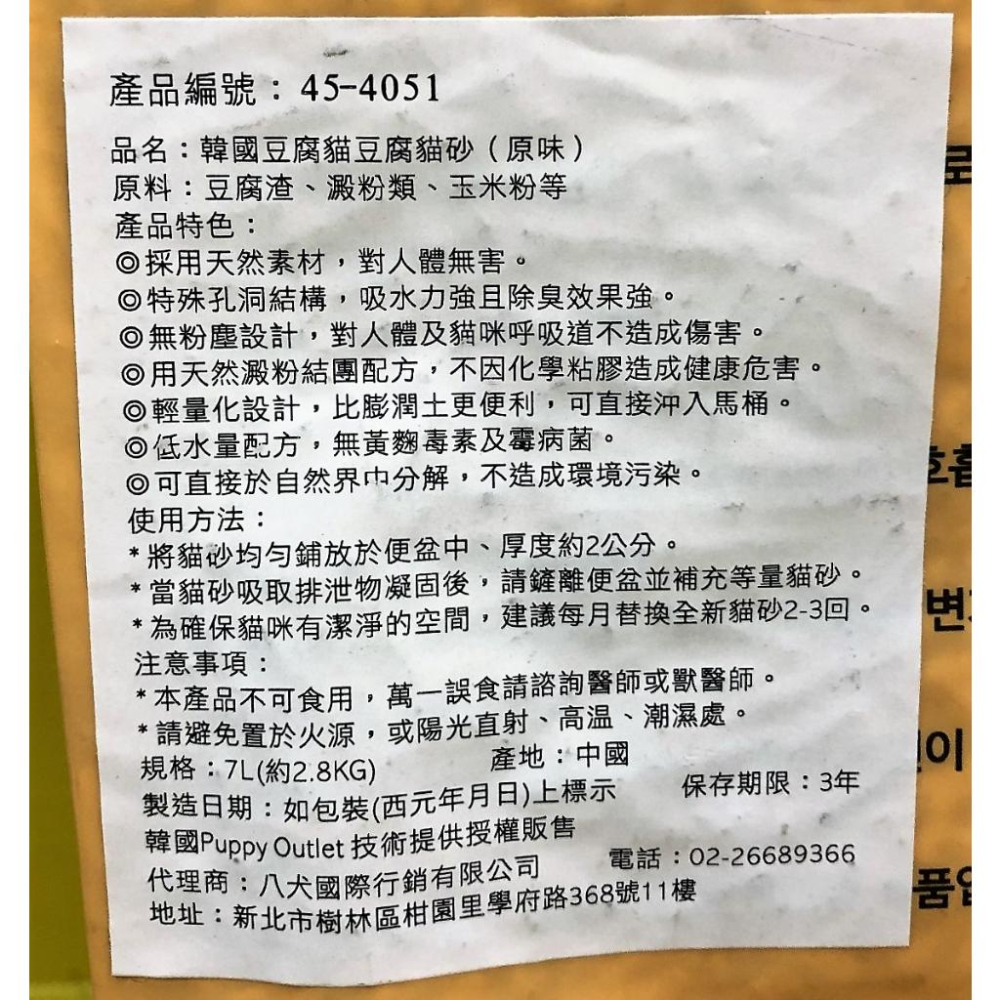 產品編號：45-4051
品名：韓國豆腐貓豆腐貓砂（原味）
原料：豆腐渣、澱粉類、玉米粉等
產品特色：
◎採用天然素材，對人體無害。
◎特殊孔洞結構，吸水力強且除臭效果強。
◎無粉塵設計，對人體及貓咪呼吸道不造成傷害。
◎用天然澱粉結團配方，不因化學粘膠造成健康危害。
◎輕量化設計，比膨潤土更便利，可直接沖入馬桶。
◎低水量配方，無黃麴毒素及霉病菌。
◎可直接於自然界中分解，不造成環境污染。
使用方法：
*將貓砂均勻鋪放於便盆中、厚度約2公分。
*當貓砂吸取排泄物凝固後，請鏟離便盆並補充等量貓砂。
*為確保貓咪有潔淨的空間，建議每月替換全新貓砂2-3回。
注意事項：
*本產品不可食用，萬一誤食請諮詢醫師或獸醫師。
*請避免置於火源，或陽光直射、高温、潮濕處。
規格：7L(約2.8KG) 產地：中國
製造日期：如包裝(西元年月日)上標示 保存期限：3年
韓國Puppy Outlet 技術提供授權販售
代理商：八犬國際行銷有限公司 電話：02-26689366
地址：新北市樹林區柑園里學府路368號11樓
로
호흡
변
이
품